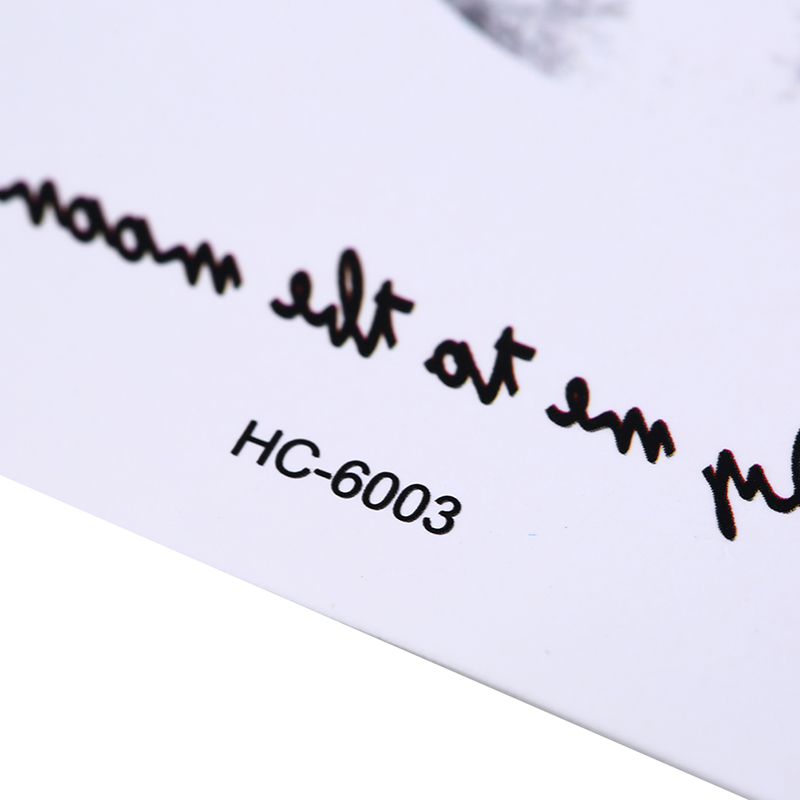 me to the moon
HC-6003